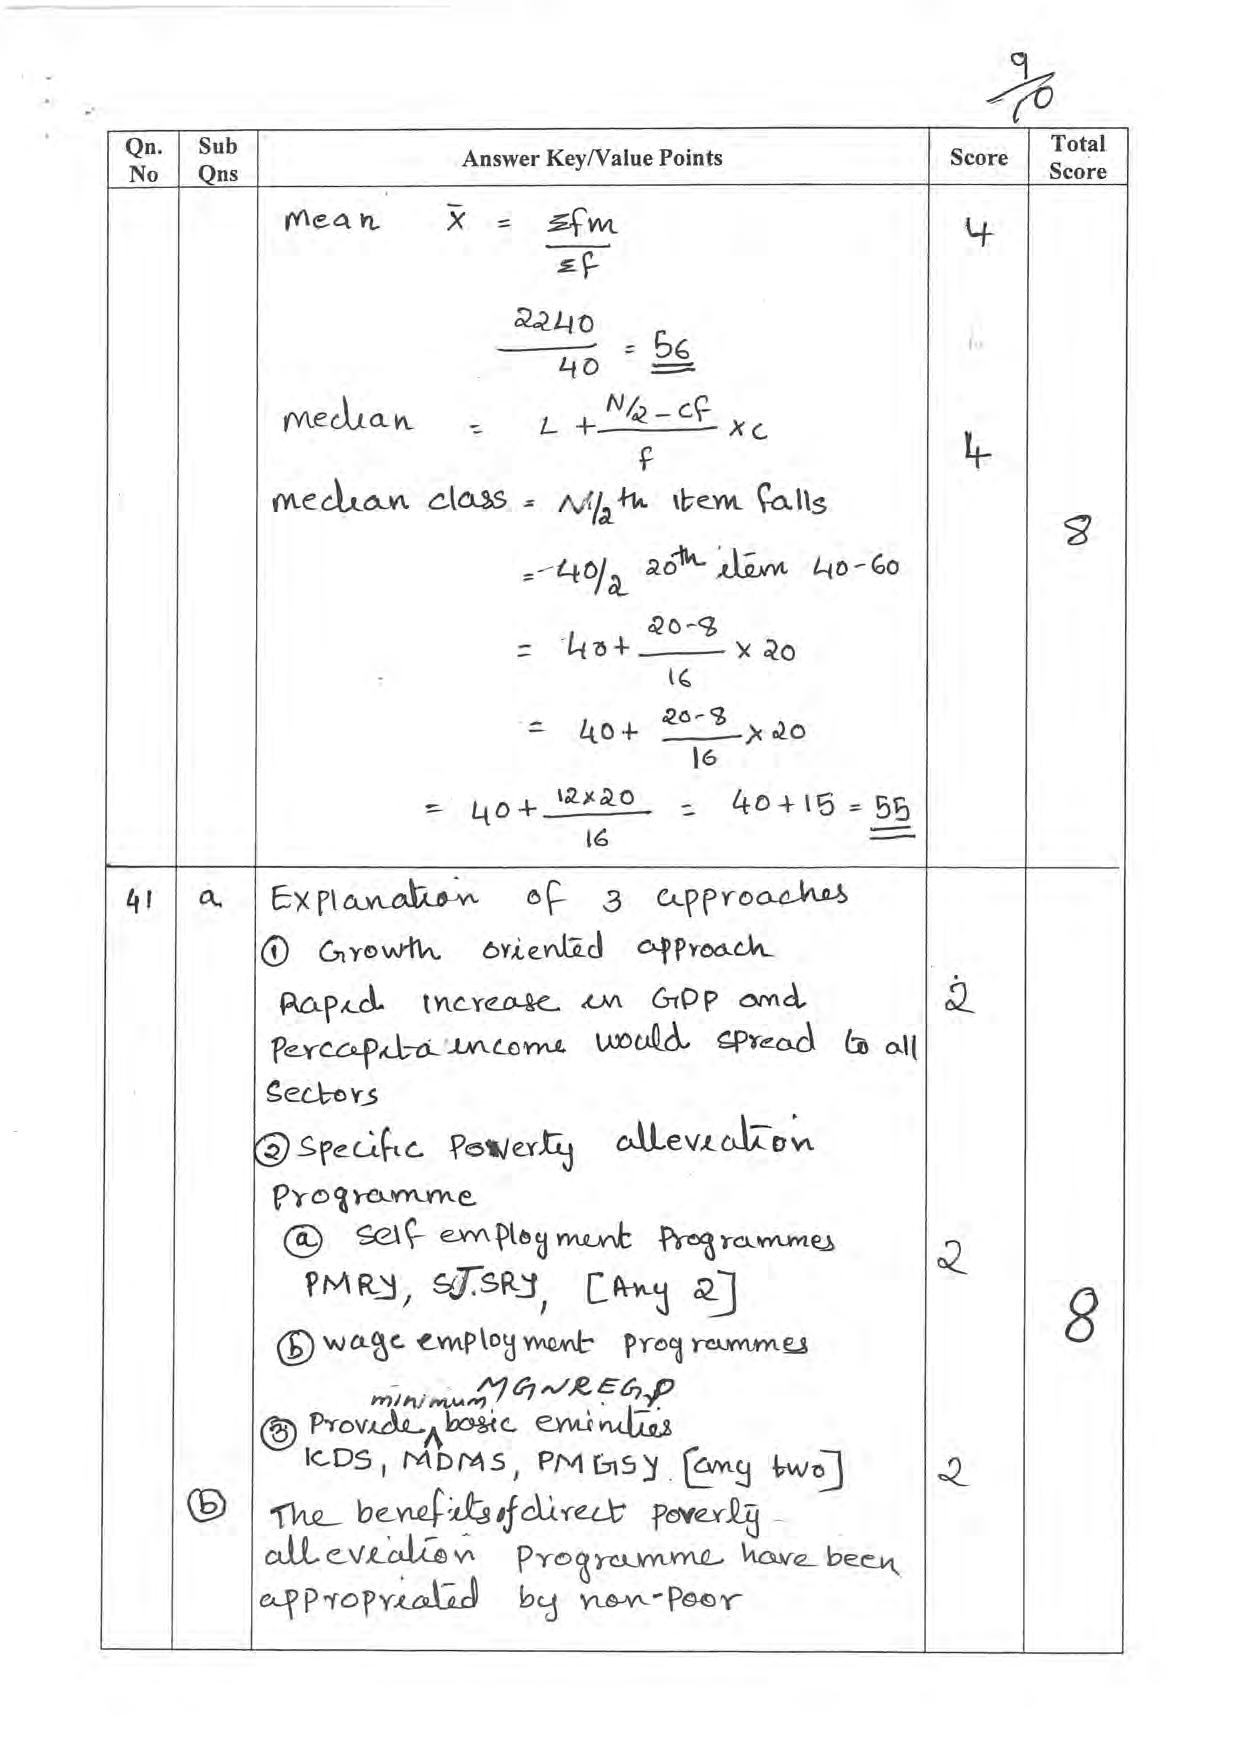 9/10
Qn. No Sub Qns Answer Key/Value Points Score Total Score
Mean X̄ = Σfm / Σf 4
2240 / 40 = 56
median = L + N/2 - cf / f × c 4
median class = N/2 th item falls
8
= 40/2 20th item 40-60
= 40 + 20-8 / 16 × 20
= 40 + 20-8 / 16 × 20
= 40 + 12×20 / 16 = 40 + 15 = 55
41 a Explanation of 3 approaches
① Growth oriented approach
Rapid increase in GDP and 2
Percapita income would spread to all
Sectors
② Specific Poverty alleviation
Programme
ⓐ Self employment Programmes 2
PMRY, SJSRY, [Any 2]
8
ⓑ wage employment programmes
MGNREGP
③ Provide minimum basic eminities
ICDS, MDMS, PMGSY [any two] 2
ⓑ The benefits of direct poverty
alleveiation Programme have been
appropriated by non-Poor